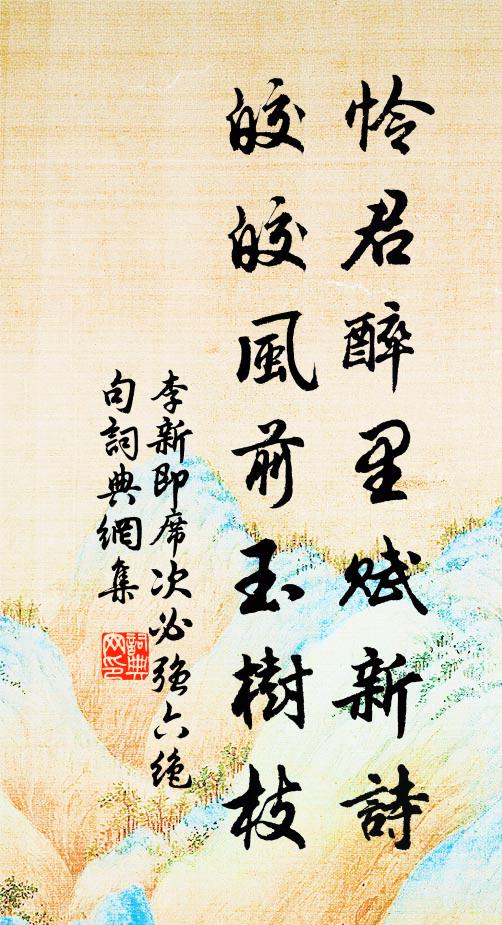 怜君醉里赋新詩
皎皎風前玉樹枝
李新即席次必强六绝
句詞典網集
詞典